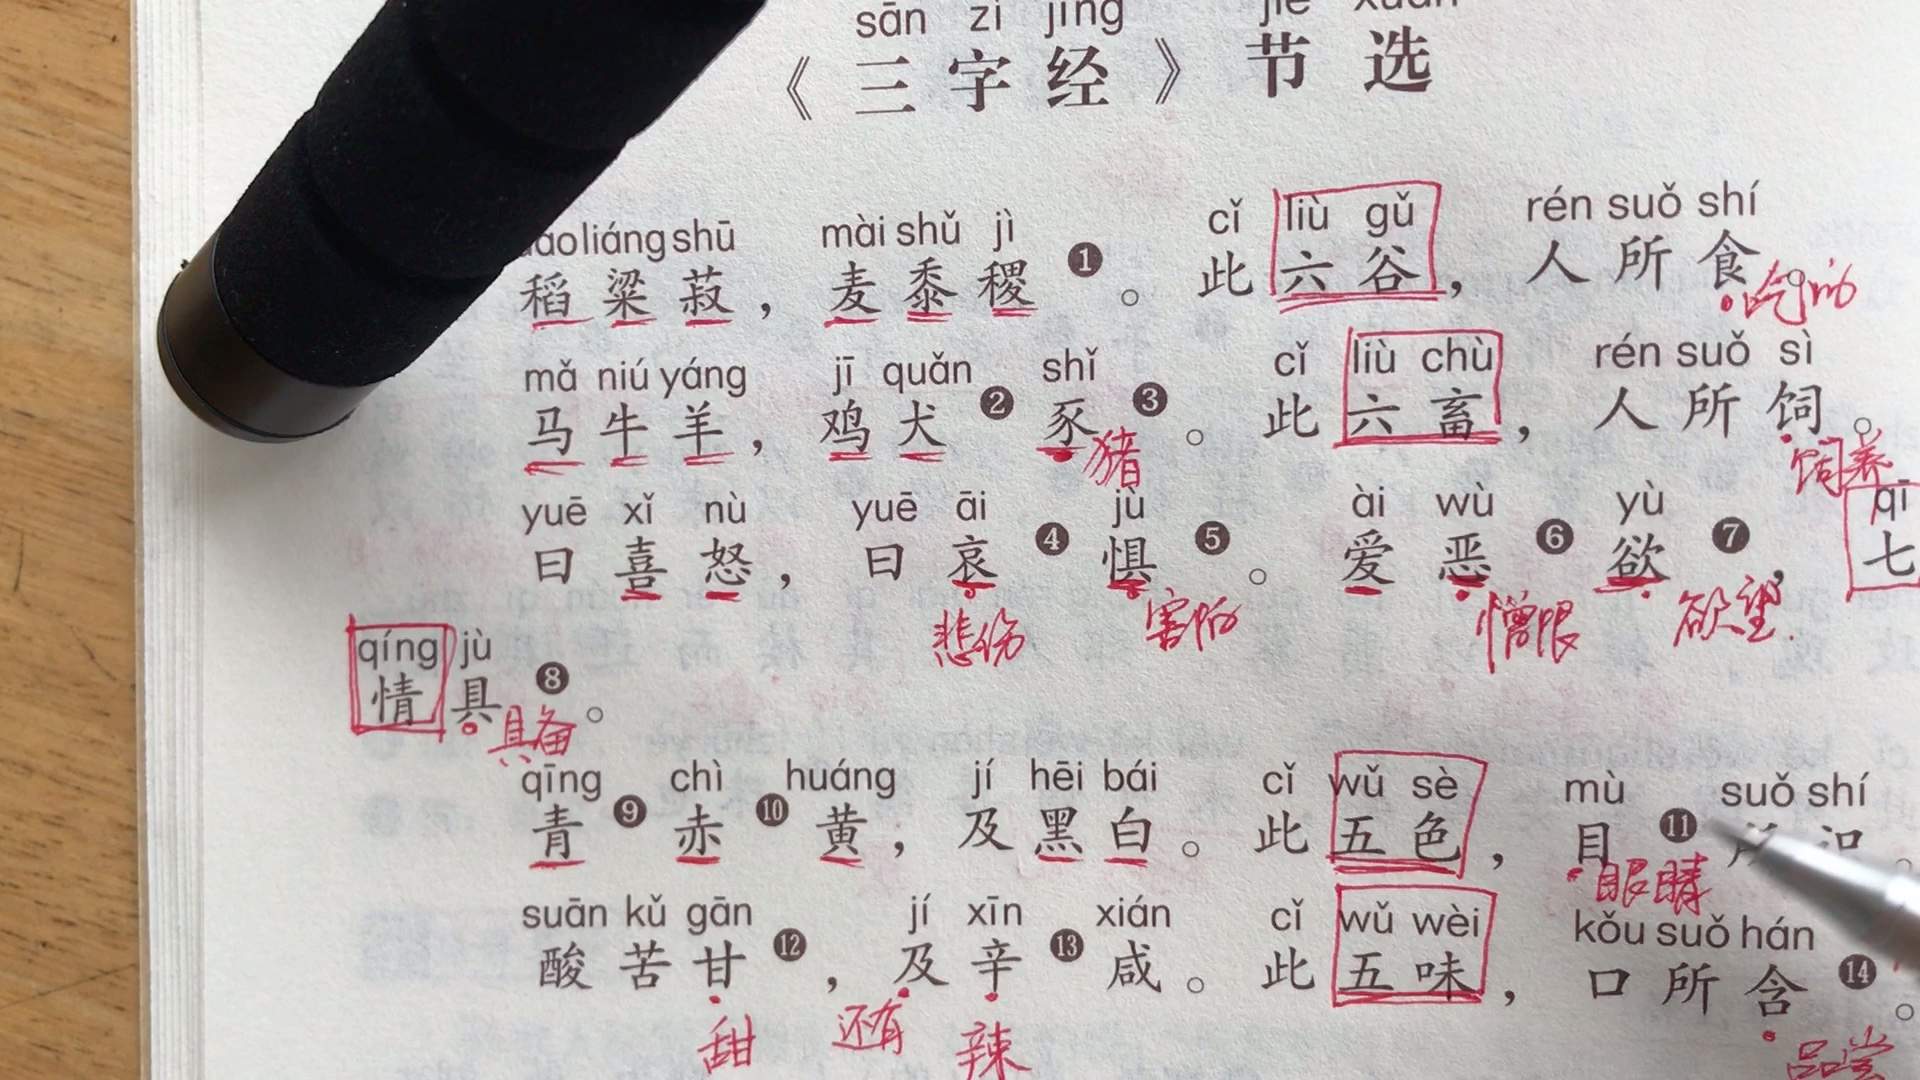 sān zì jīng
《三字经》节选
liáng shū mài shǔ jì cǐ liù gǔ rén suǒ shí
稻粱菽，麦黍稷❶。此六谷，人所食。
吃的
mǎ niú yáng jī quǎn shǐ cǐ liù chù rén suǒ sì
马牛羊，鸡犬❷豕❸。此六畜，人所饲。
猪 饲养
yuē xǐ nù yuē āi jù ài wù yù qī
曰喜怒，曰哀❹惧❺。爱恶❻欲❼，七
悲伤 害怕 憎恨 欲望
qíng jù
情具❽。
具备
qīng chì huáng jí hēi bái cǐ wǔ sè mù suǒ shí
青❾赤❿黄，及黑白。此五色，目⓫
眼睛
suān kǔ gān jí xīn xián cǐ wǔ wèi kǒu suǒ hán
酸苦甘⓬，及辛⓭咸。此五味，口所含⓮。
甜 还有 辣 品尝